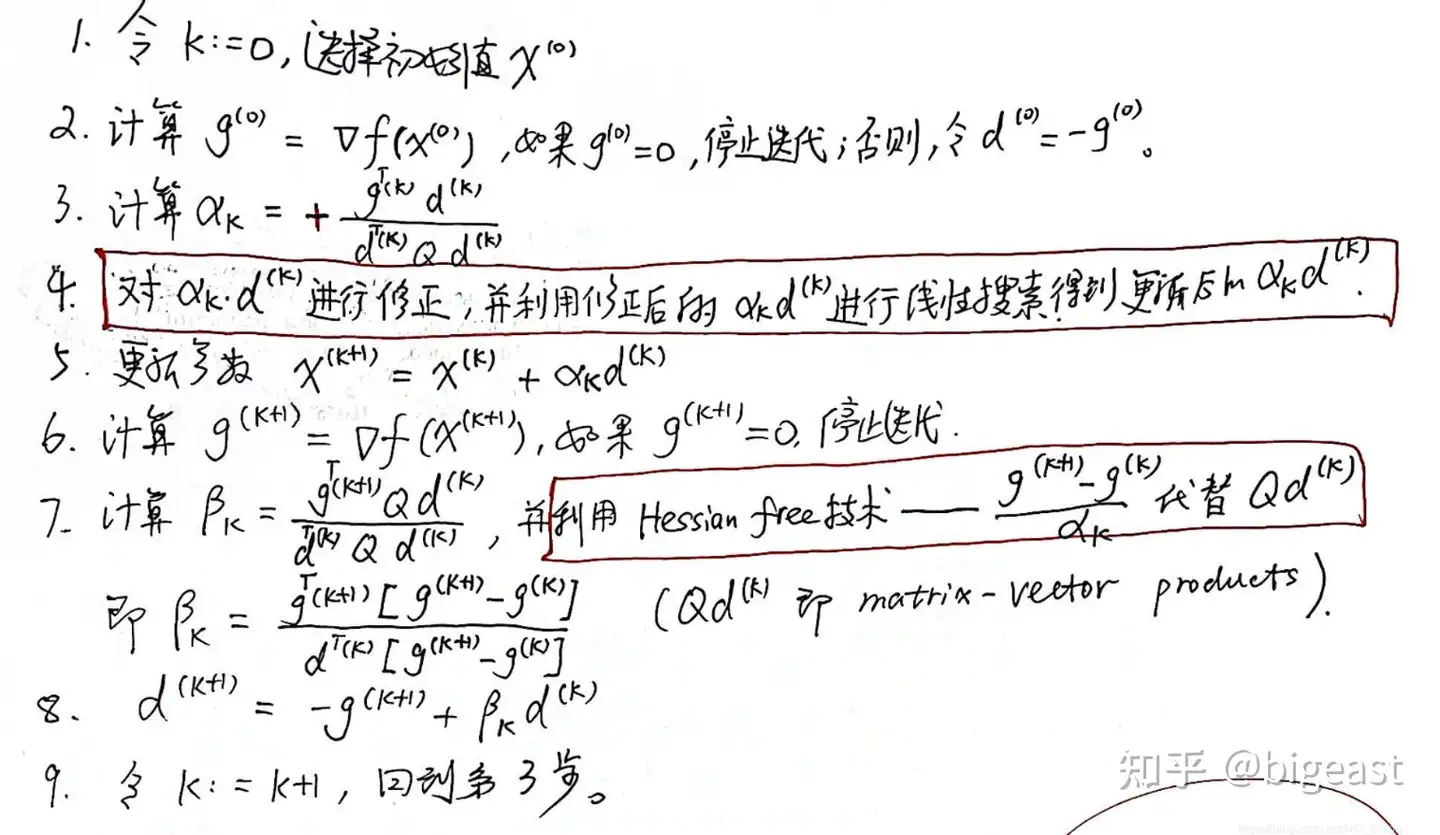 1. 令 k:=0, 选择初始值 x⁽⁰⁾
2. 计算 g⁽⁰⁾ = ∇f(x⁽⁰⁾), 如果 g⁽⁰⁾=0, 停止迭代; 否则, 令 d⁽⁰⁾ = -g⁽⁰⁾。
3. 计算 αₖ = + gᵀ⁽ᵏ⁾ d⁽ᵏ⁾ / dᵀ⁽ᵏ⁾ Q d⁽ᵏ⁾
4. 对 αₖ·d⁽ᵏ⁾ 进行修正, 并利用修正后的 αₖd⁽ᵏ⁾ 进行线性搜索得到更新后的 αₖd⁽ᵏ⁾.
5. 更新参数 x⁽ᵏ⁺¹⁾ = x⁽ᵏ⁾ + αₖd⁽ᵏ⁾
6. 计算 g⁽ᵏ⁺¹⁾ = ∇f(x⁽ᵏ⁺¹⁾), 如果 g⁽ᵏ⁺¹⁾=0, 停止迭代.
7. 计算 βₖ = gᵀ⁽ᵏ⁺¹⁾ Q d⁽ᵏ⁾ / dᵀ⁽ᵏ⁾ Q d⁽ᵏ⁾, 并利用 Hessian free技术 —— (g⁽ᵏ⁺¹⁾-g⁽ᵏ⁾) / αₖ 代替 Qd⁽ᵏ⁾
即 βₖ = gᵀ⁽ᵏ⁺¹⁾[g⁽ᵏ⁺¹⁾-g⁽ᵏ⁾] / dᵀ⁽ᵏ⁾[g⁽ᵏ⁺¹⁾-g⁽ᵏ⁾] (Qd⁽ᵏ⁾ 即 matrix-vector products).
8. d⁽ᵏ⁺¹⁾ = -g⁽ᵏ⁺¹⁾ + βₖd⁽ᵏ⁾
9. 令 k:=k+1, 回到第3步。
知乎 @bigeast